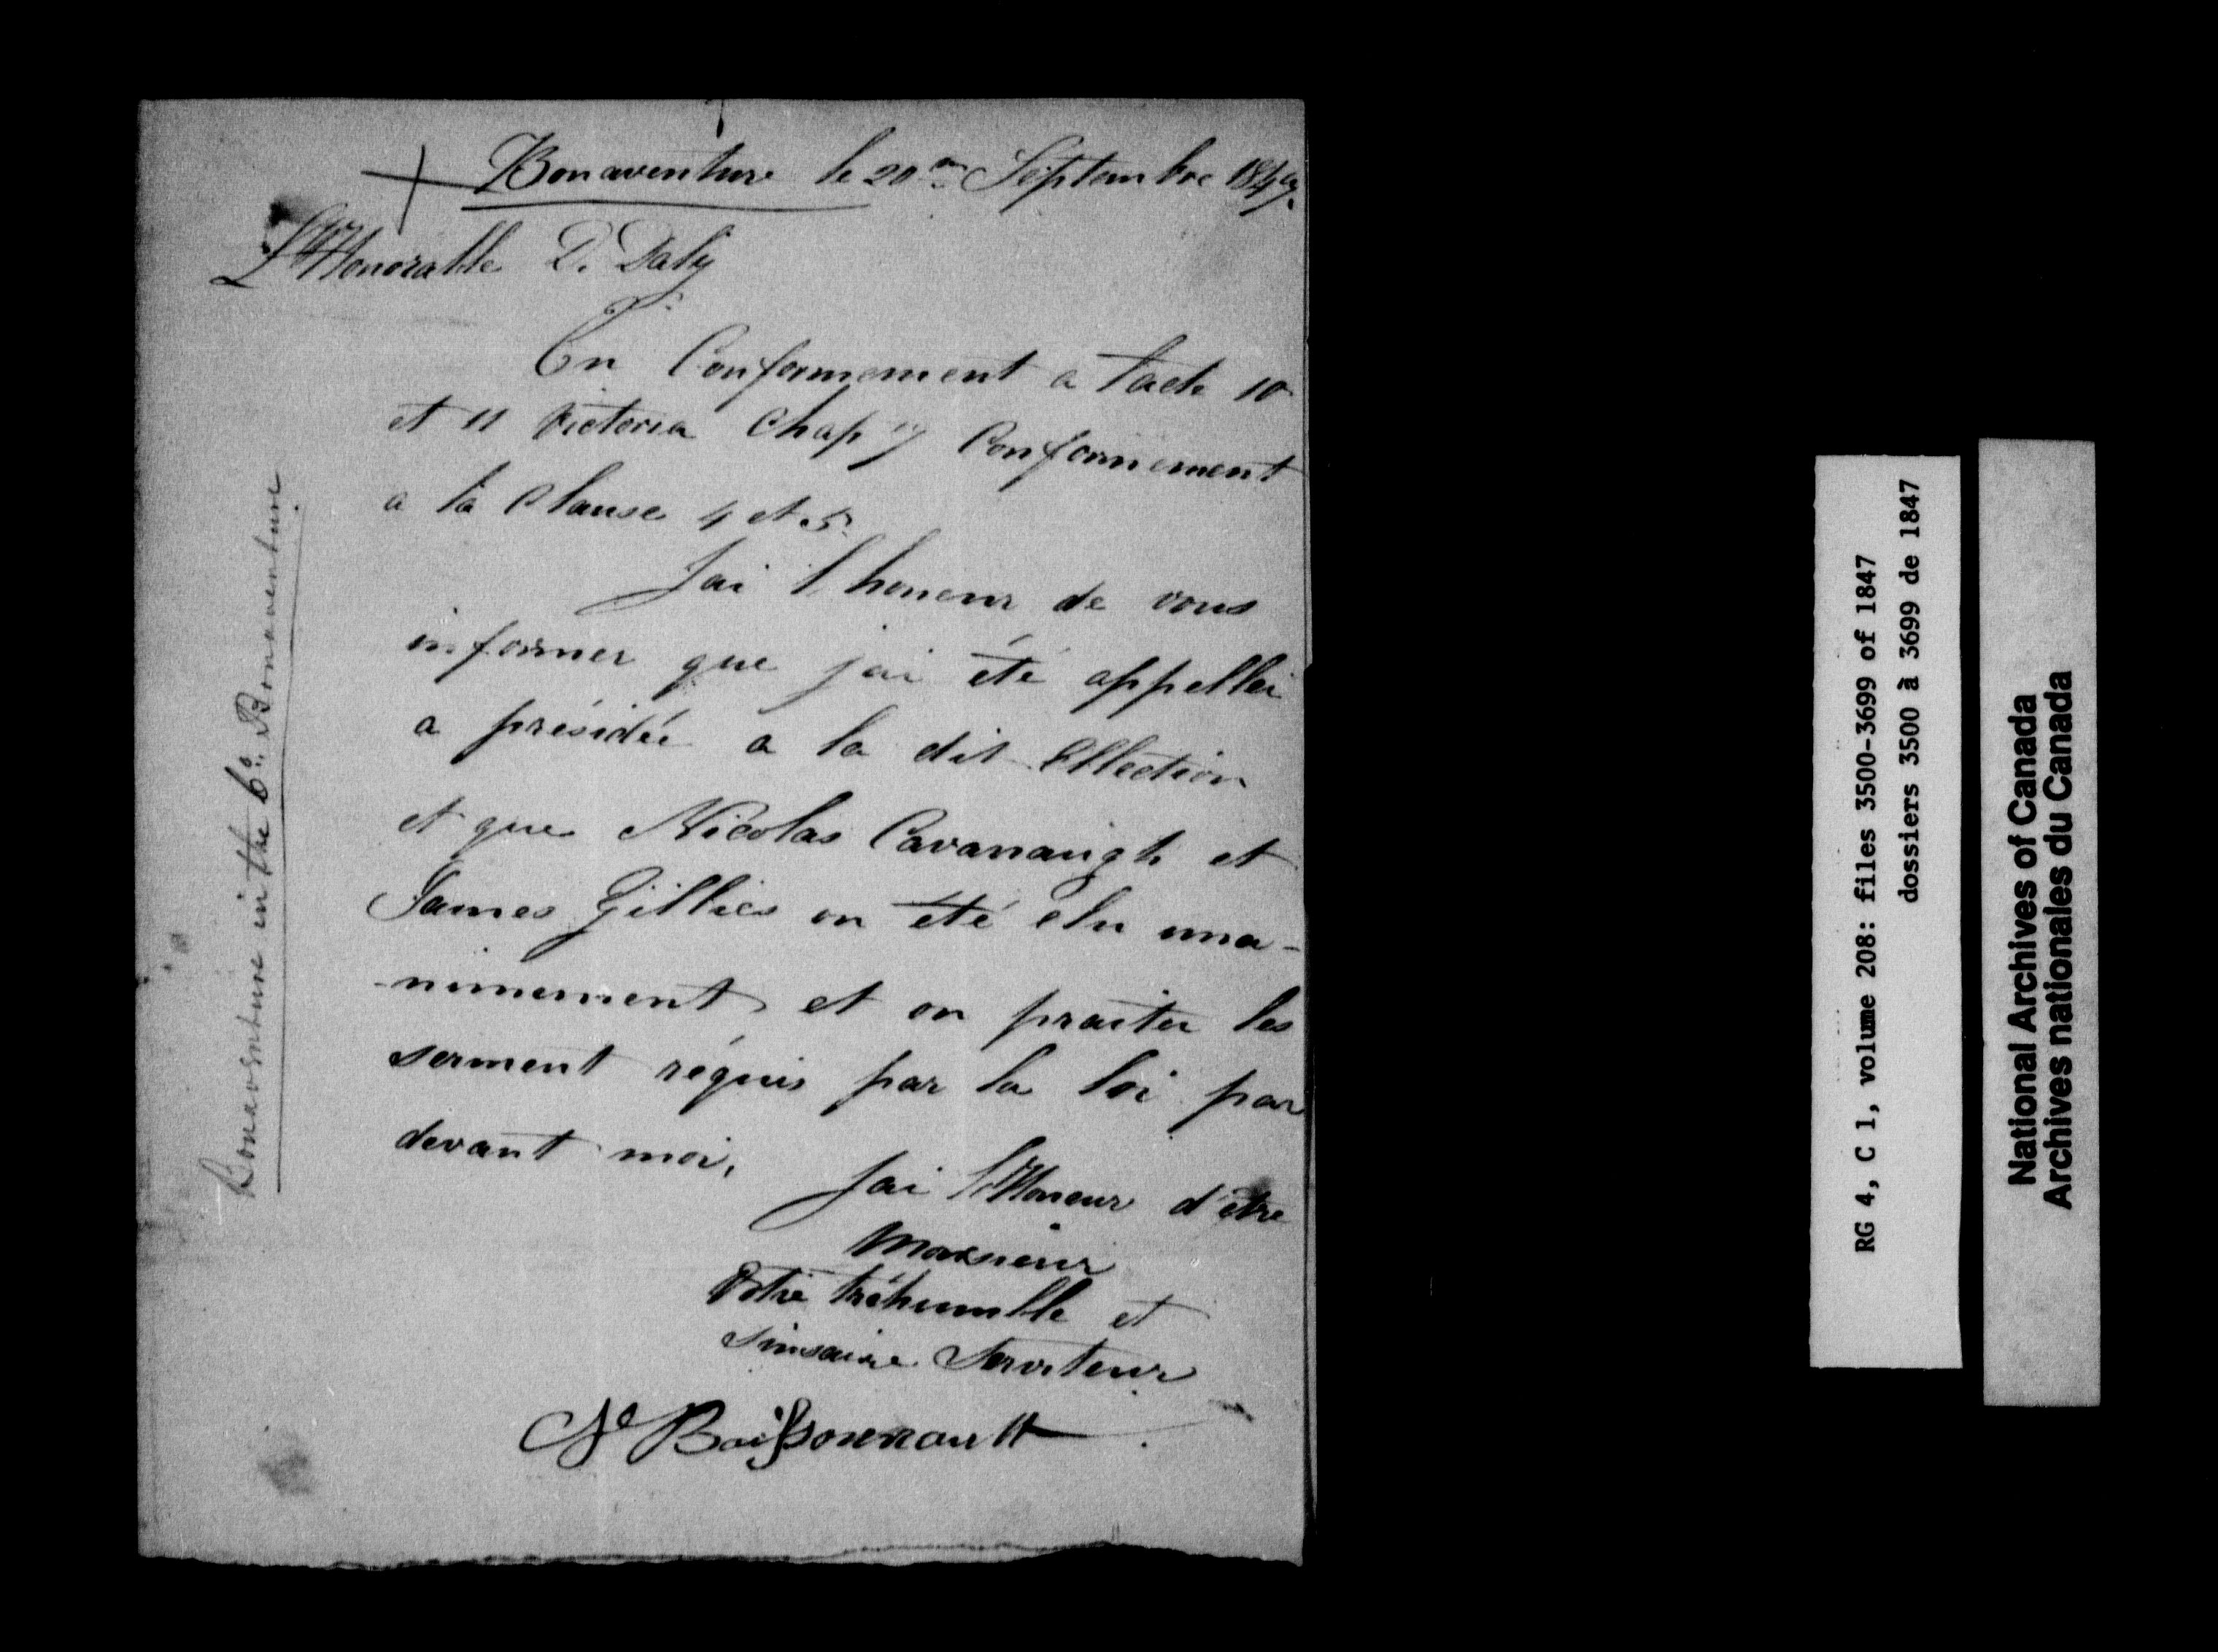 Bonaventure le 20me Septembre 1847.
L'Honorable D. Daly
En Conformement a l'acte 10
et 11 Victoria Chap 7 Conformement
a la Clause 4 et 5
Jai l'honeur de vous
informer que jai été appellei
a présidéé a la dit Ellection
et que Nicolas Cavanaugh et
James Gillies on été elu una-
-nimement et on praiter les
serment réquis par la loi par
devant moi,
Jai l'Honeur d'être
Monsieur
Votre tréhumble et
Sinsaire Serviteur
Boissonnault
Bonaventure in the Co. Bonaventure
RG 4, C 1, volume 208: files 3500-3699 of 1847
dossiers 3500 à 3699 de 1847
National Archives of Canada
Archives nationales du Canada